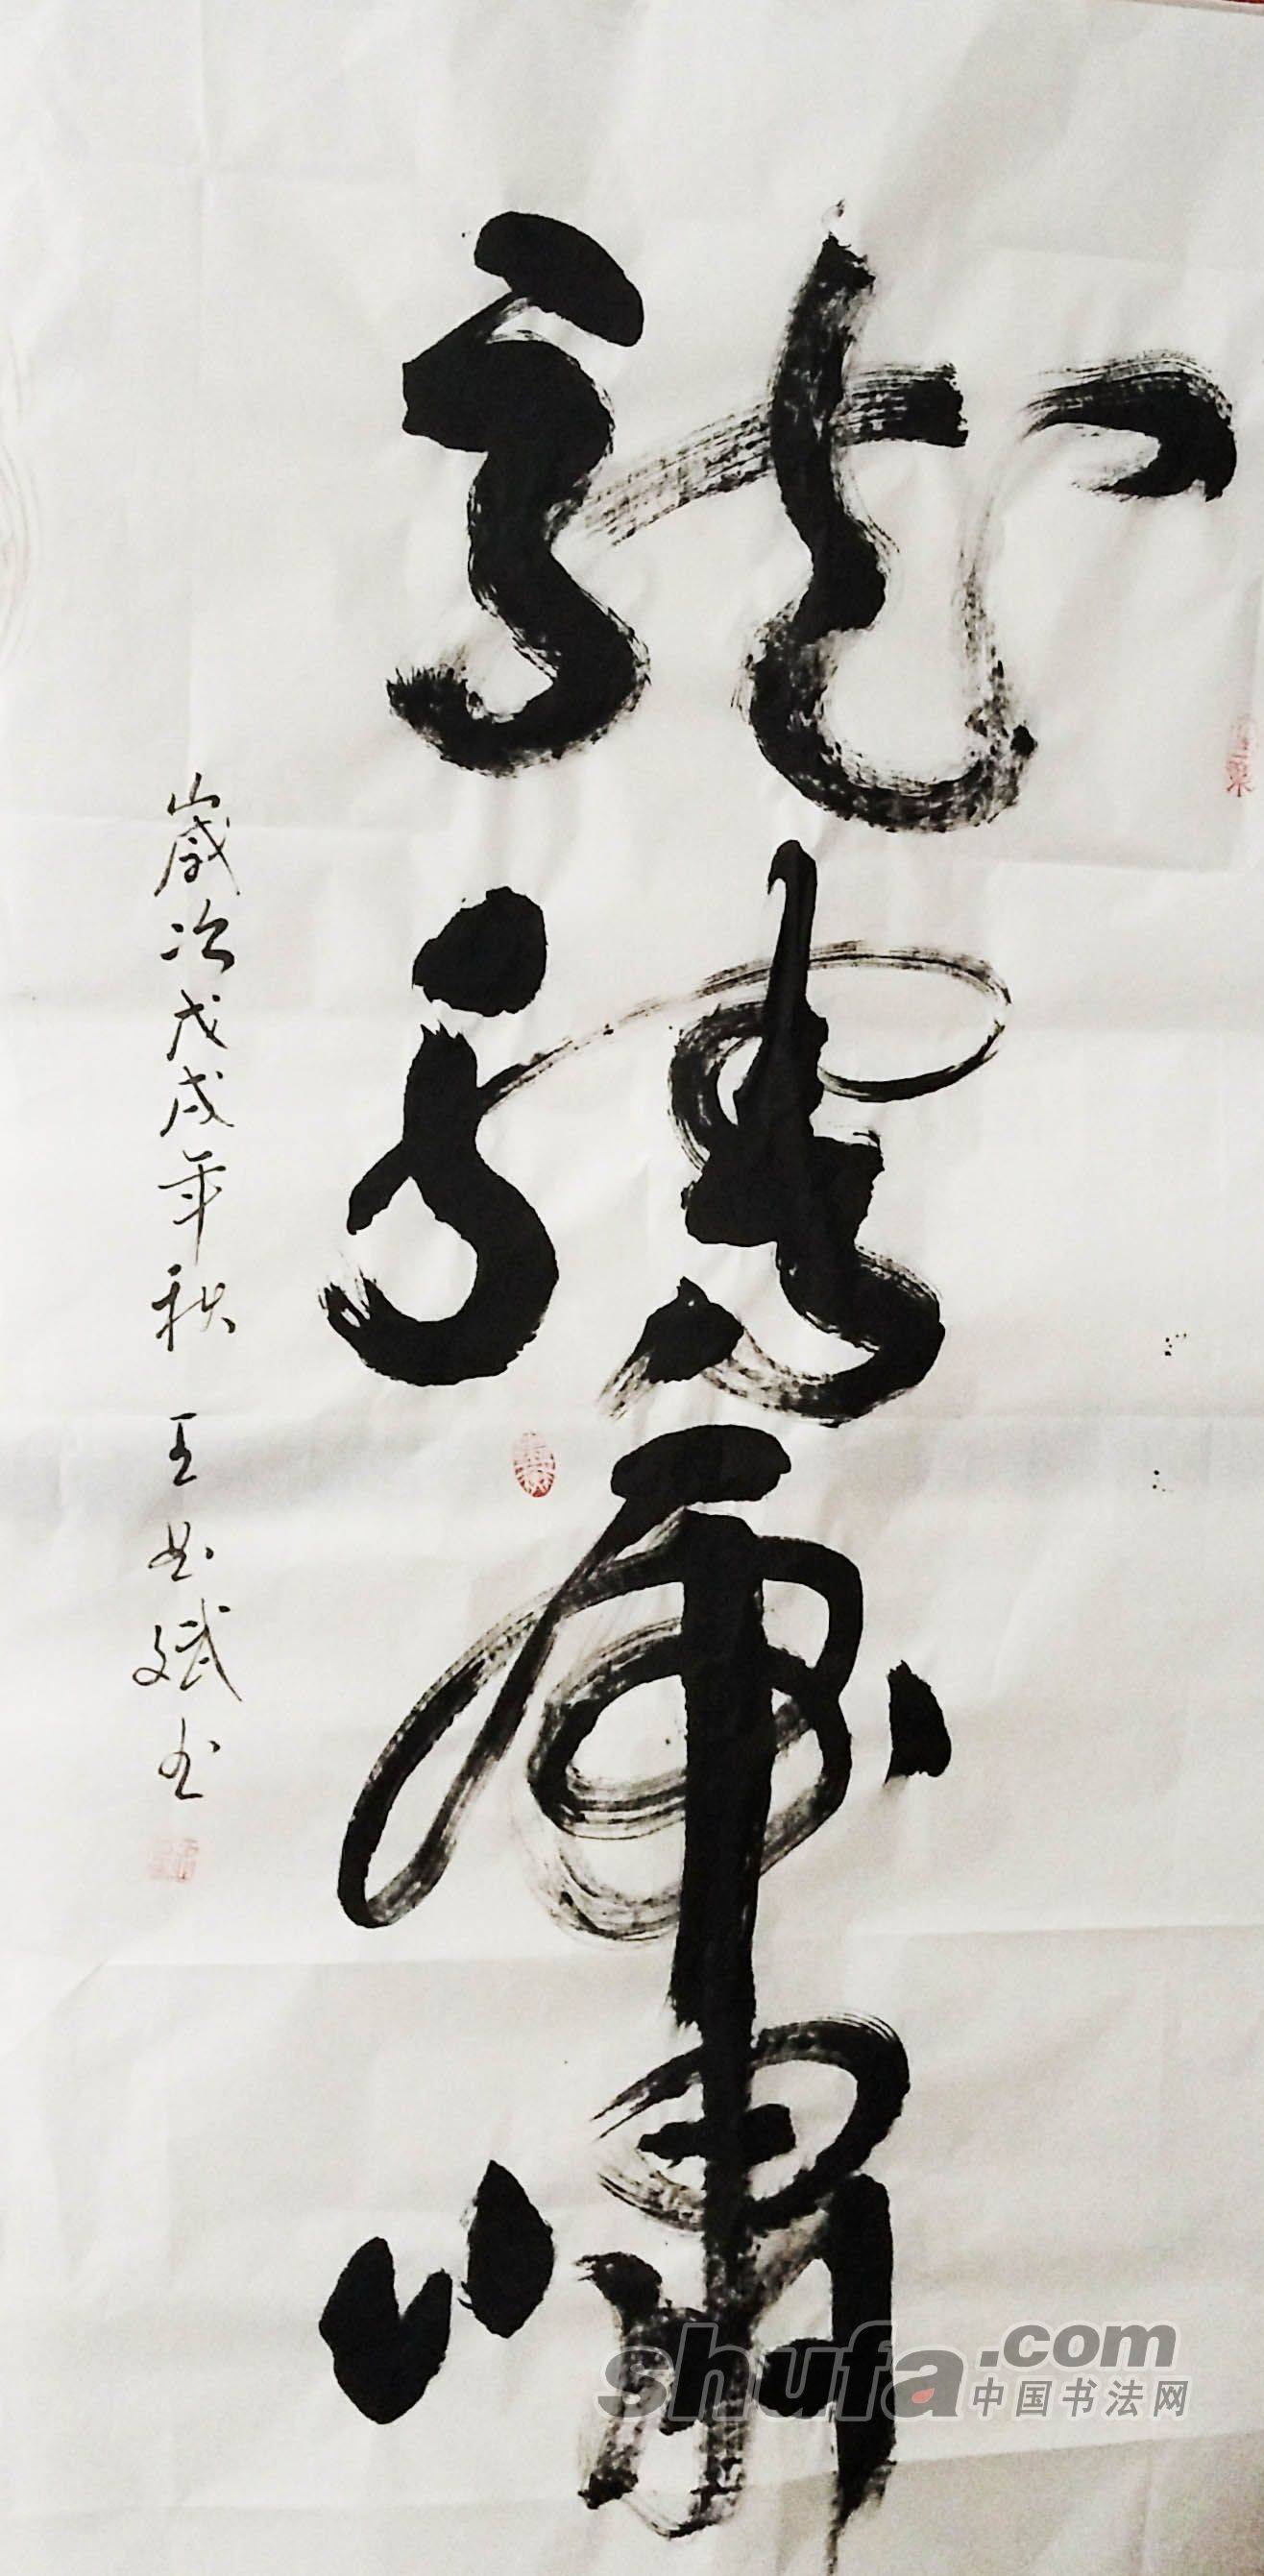 龍騰虎嘯
歲次戊戌年秋 王斌书
shufa.com
中国书法网